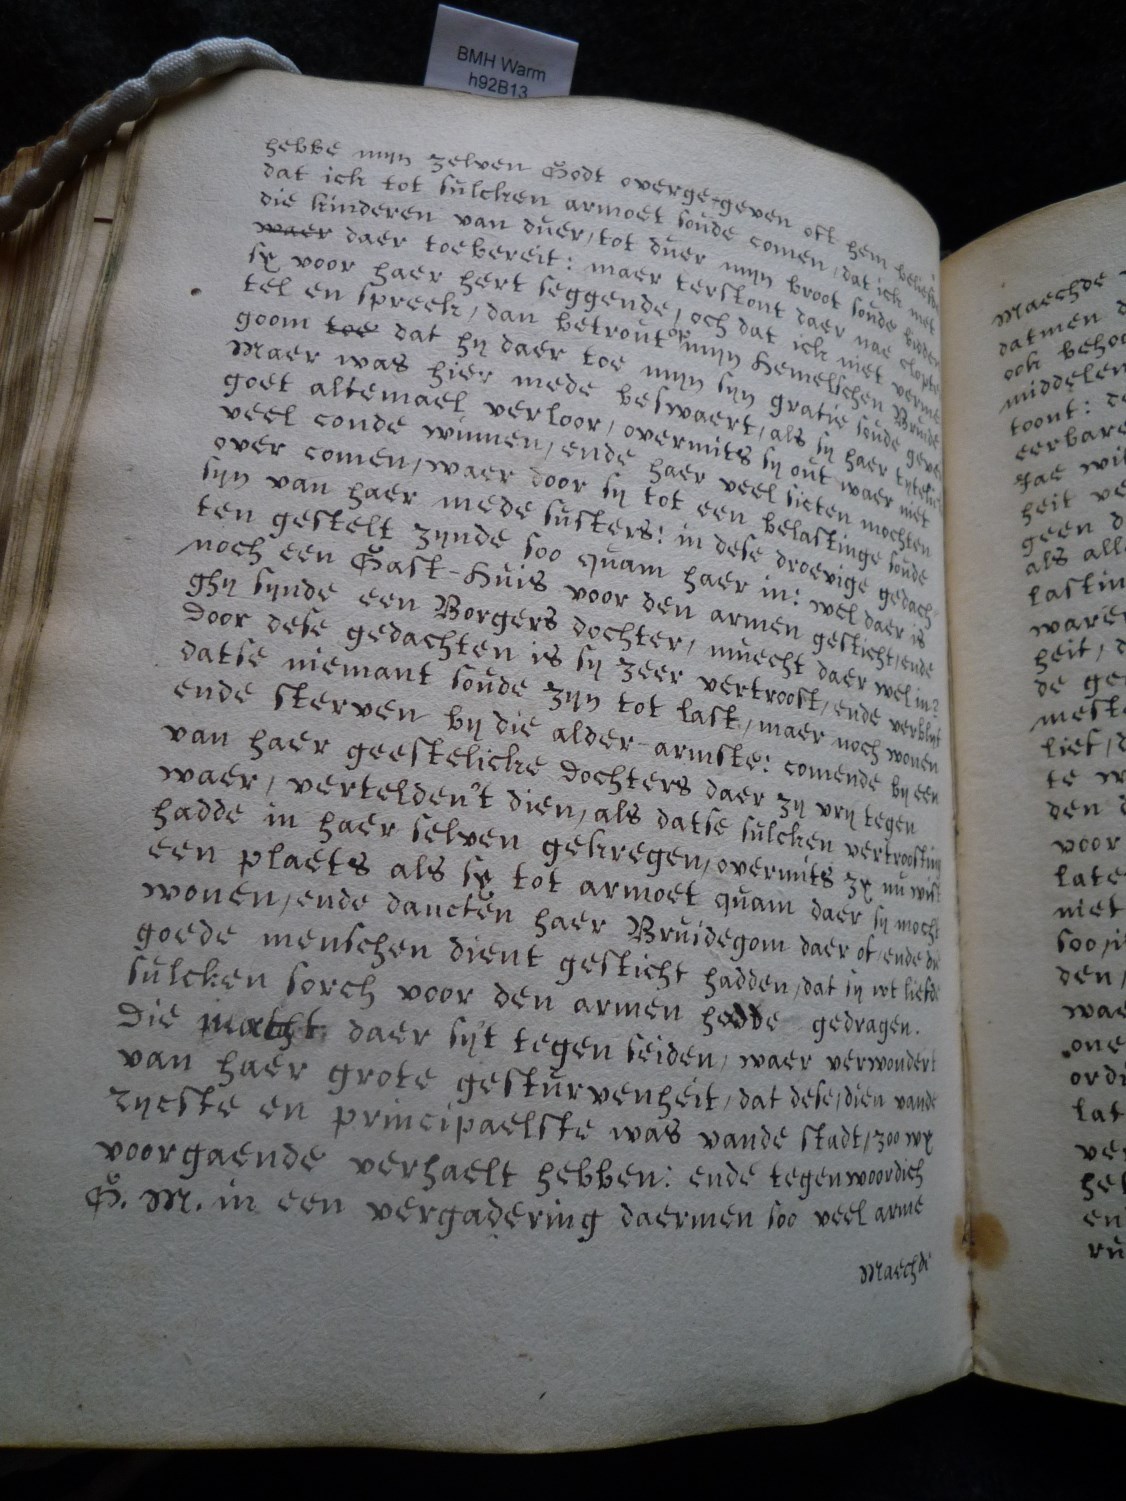 BMH Warm
h92B13
hebbe mijn zelven Godt overgegeven oft hem beliefde
dat ick tot sulcken armoet soude comen, dat ick met
die kinderen van duer, tot duer mijn broot soude bidden
waer daer toebereit: maer terstont daer nae clopte
sy voor haer hert seggende, och dat ick niet verme
tel en spreek, dan betrout op mijn Hemelschen Bruide
goom toe dat hy daer toe mijn syn gratie soude geven
Maer was hier mede beswaert, als sy haer tytelick
goet altemael verloor, overmits sy out waer niet
veel conde winnen, ende haer veel sieten mochten
over comen, waer door sy tot een belastinge soude
syn van haer mede susters: in dese droevige gedach-
ten gestelt zynde soo quam haer in: wel daer is
noch een Gast-Huis voor den armen gesticht, ende
ghy synde een Borgers dochter, muecht daer wel in?
Door dese gedachten is sy zeer vertroost, ende verblijt
datse niemant soude zyn tot last, maer noch wonen
ende sterven by die alder-armste: comende by een
van haer geestelicke Dochters daer zy vry tegen
waer, vertelden't dien, als datse sulcken vertroosting
hadde in haer selven gekregen, overmits zy nu wist
een plaets als sy tot armoet quam daer sy mocht
wonen, ende dancten haer Bruidegom daer of, ende die
goede menschen dient gesticht hadden, dat sy wt liefde
sulcken sorch voor den armen hedde gedragen.
Die daer sy't tegen seiden, waer verwondert
van haer grote gesturvenheit, dat dese, dien vande
zyeste en principaelste was vande stadt, zoo wy
voorgaende verhaelt hebben: ende tegenwoordich
G. M. in een vergadering daermen soo veel arme
Maechdē
Maechde
datmen
ook beho
middelen
toont: de
eerbare
Jae wi
heit ve
geen d
als all
lastin
waren
heit, d
de ge
meste
lief, d
te w
den
voor
late
niet
soo, i
den,
wae
one
ordi
lat
ver
heb
en
ru